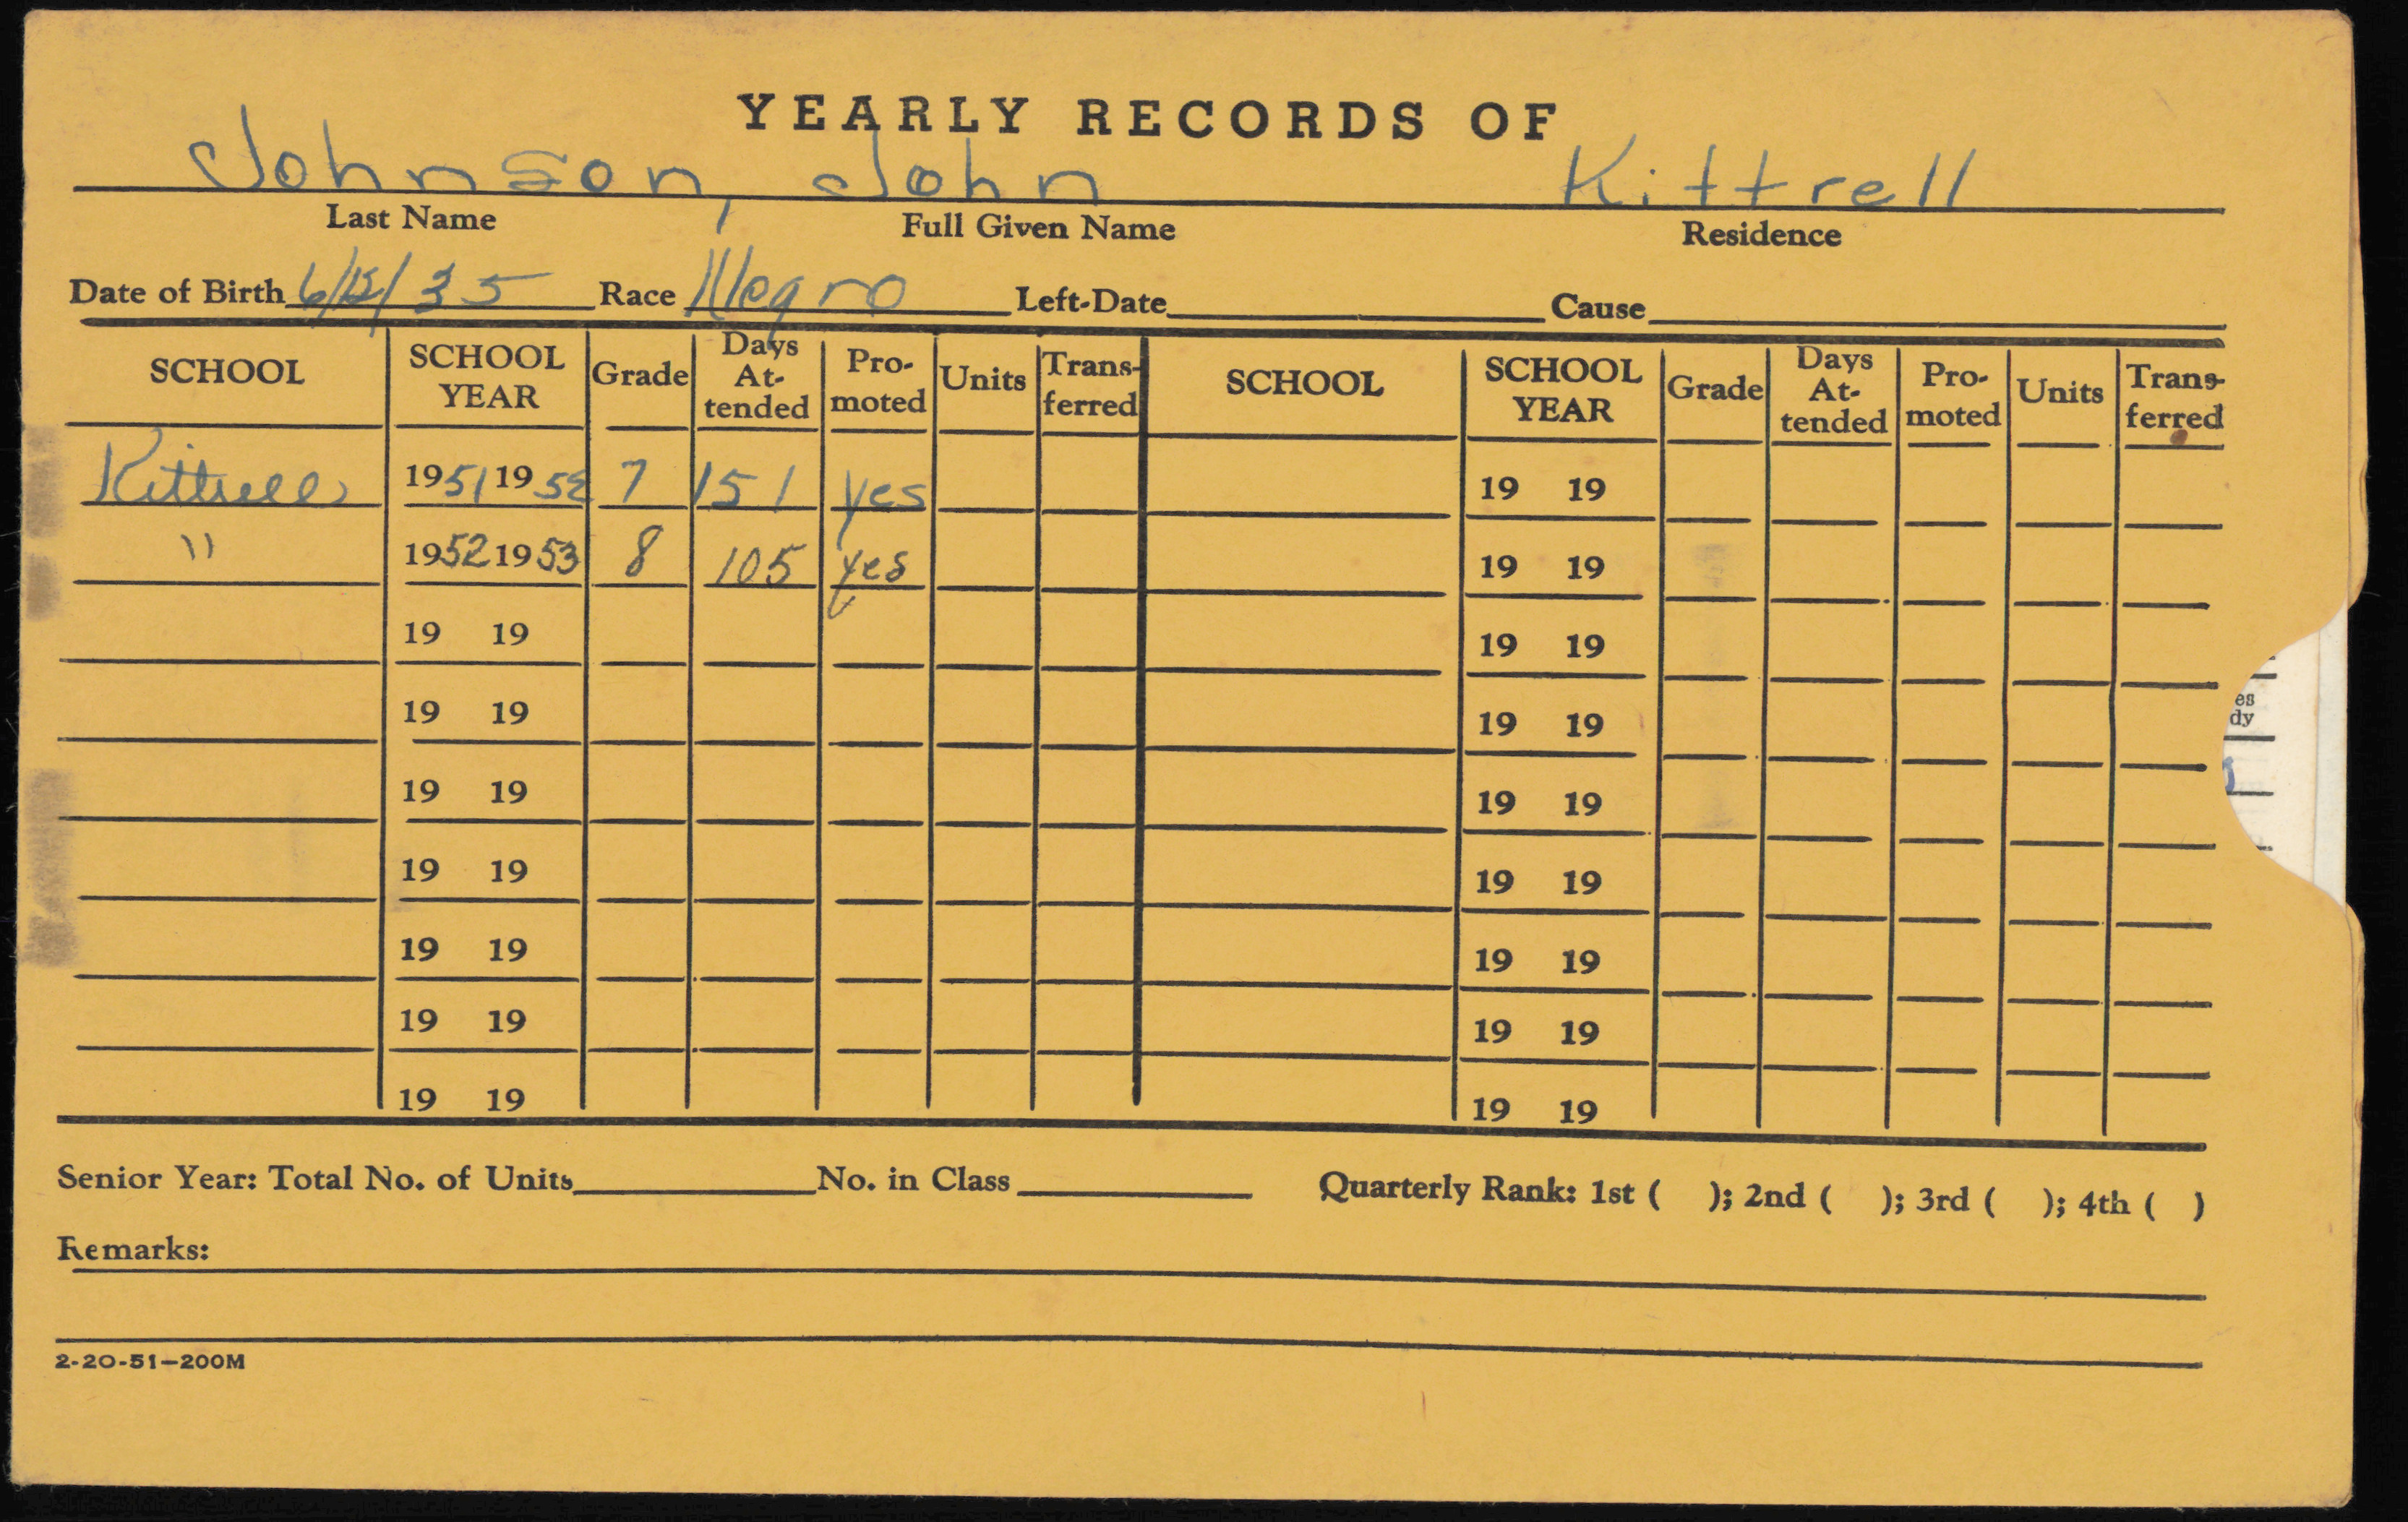 YEARLY RECORDS OF
Johnson, John Kittrell
Last Name Full Given Name Residence
Date of Birth 6/12/35 Race Negro Left-Date Cause
SCHOOL SCHOOL YEAR Grade Days At-tended Pro-moted Units Trans-ferred SCHOOL SCHOOL YEAR Grade Days At-tended Pro-moted Units Trans-ferred
Kittrell 1951 1952 7 151 yes 19 19
" 1952 1953 8 105 yes 19 19
19 19 19 19
19 19 19 19
19 19 19 19
19 19 19 19
19 19 19 19
19 19 19 19
19 19 19 19
Senior Year: Total No. of Units No. in Class Quarterly Rank: 1st ( ); 2nd ( ); 3rd ( ); 4th ( )
Remarks:
2-20-51—200M
es
dy